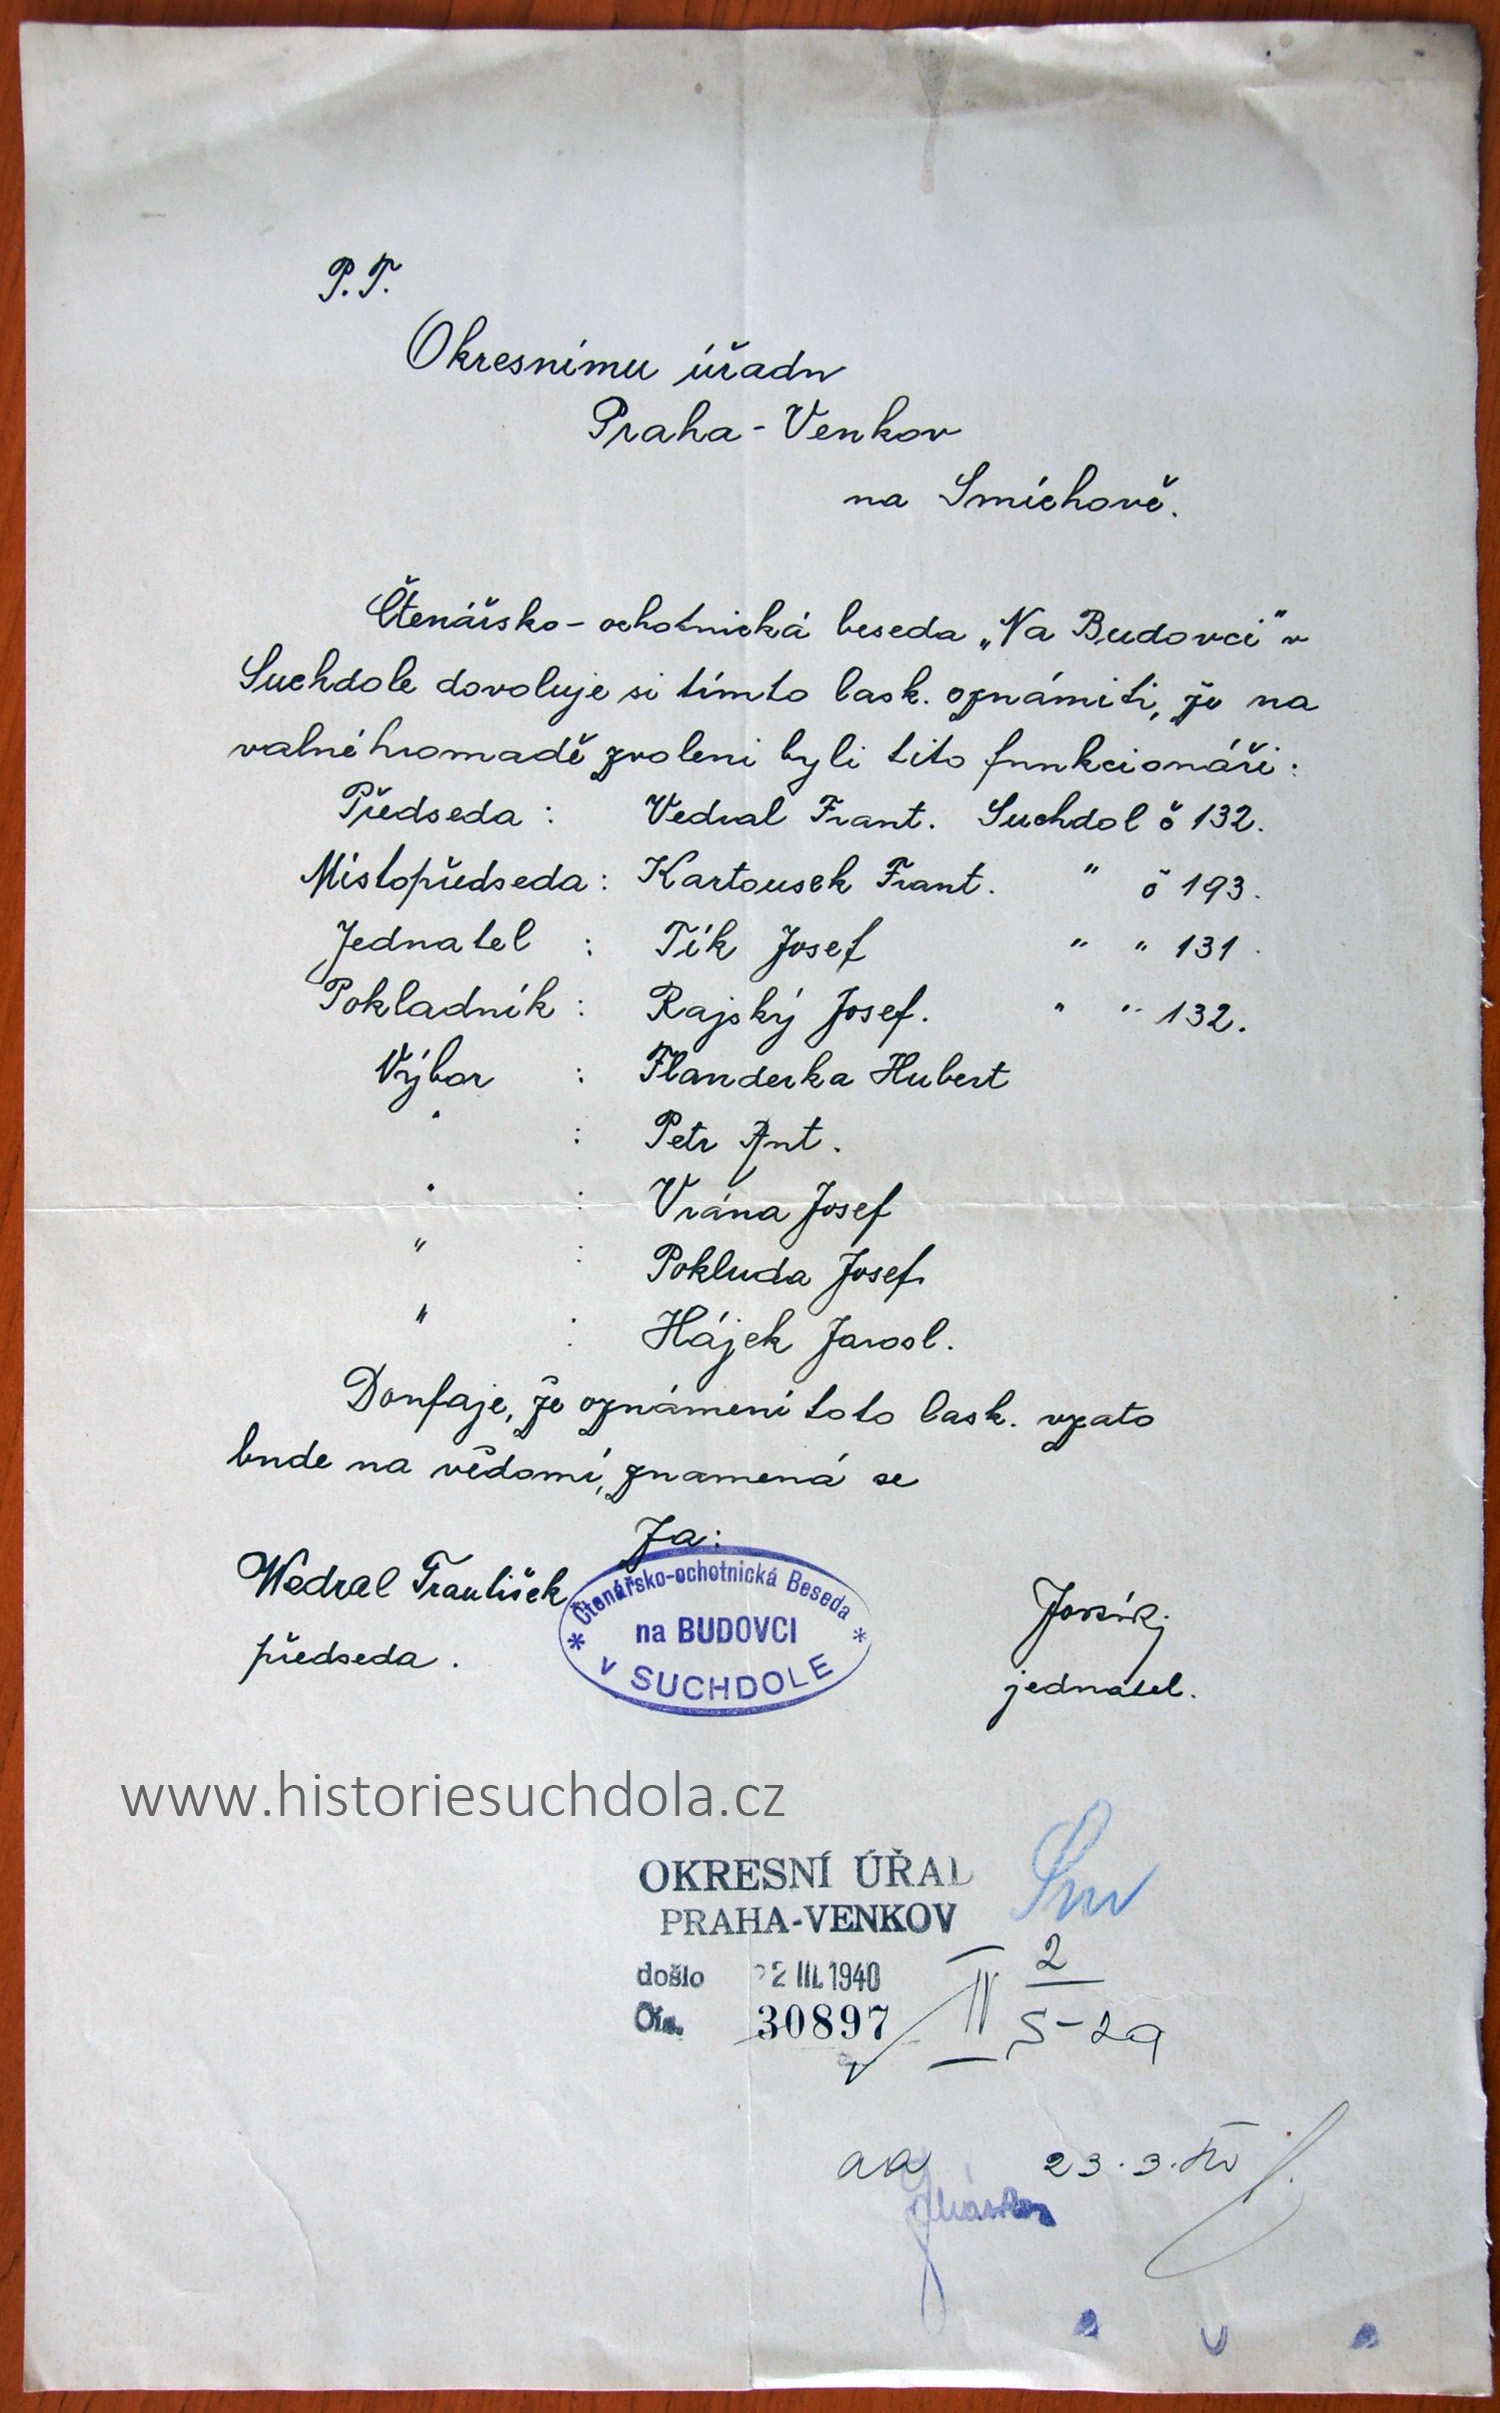 P.T.
Okresnímu úřadu
Praha-Venkov
na Smíchově.
Čtenářsko-ochotnická beseda „Na Budovci" v
Suchdole dovoluje si tímto lask. oznámiti, že na
valné hromadě zvoleni byli tito funkcionáři:
Předseda : Vedral Frant. Suchdol č 132.
Místopředseda : Kartousek Frant. " č 193.
Jednatel : Tík Josef " " 131.
Pokladník : Rajský Josef. " " 132.
Výbor : Flanderka Hubert
" : Petr Ant.
" : Vrána Josef
" : Pokluda Josef.
" : Hájek Jarosl.
Doufaje, že oznámení toto lask. vzato
bude na vědomí, znamená se
Za:
Wedral František
předseda.
Čtenářsko-ochotnická Beseda
* na BUDOVCI *
v SUCHDOLE
jednatel.
www.historiesuchdola.cz
OKRESNÍ ÚŘAD
PRAHA-VENKOV
došlo 22 III. 1940
Čís. 30897
IV 2
S-29
aa 23.3.